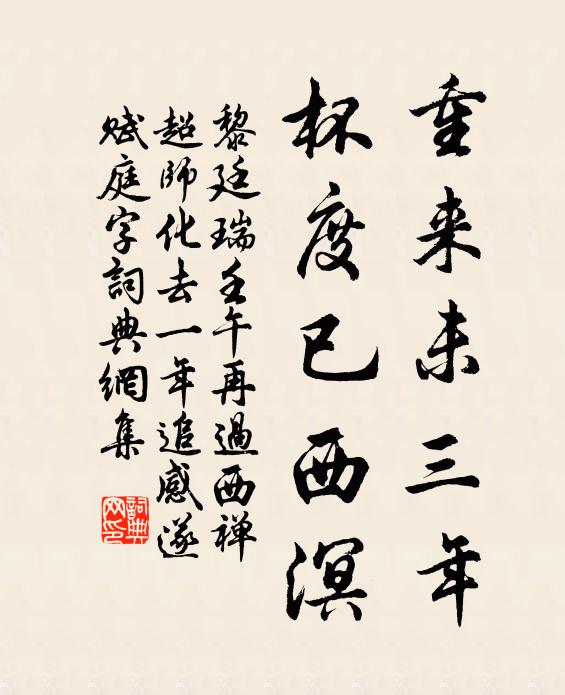 重来未三年
杯度已西溟
黎廷瑞壬午再過西禅
超師化去一年追感遂
赋庭字詞典網集
詞典
网印